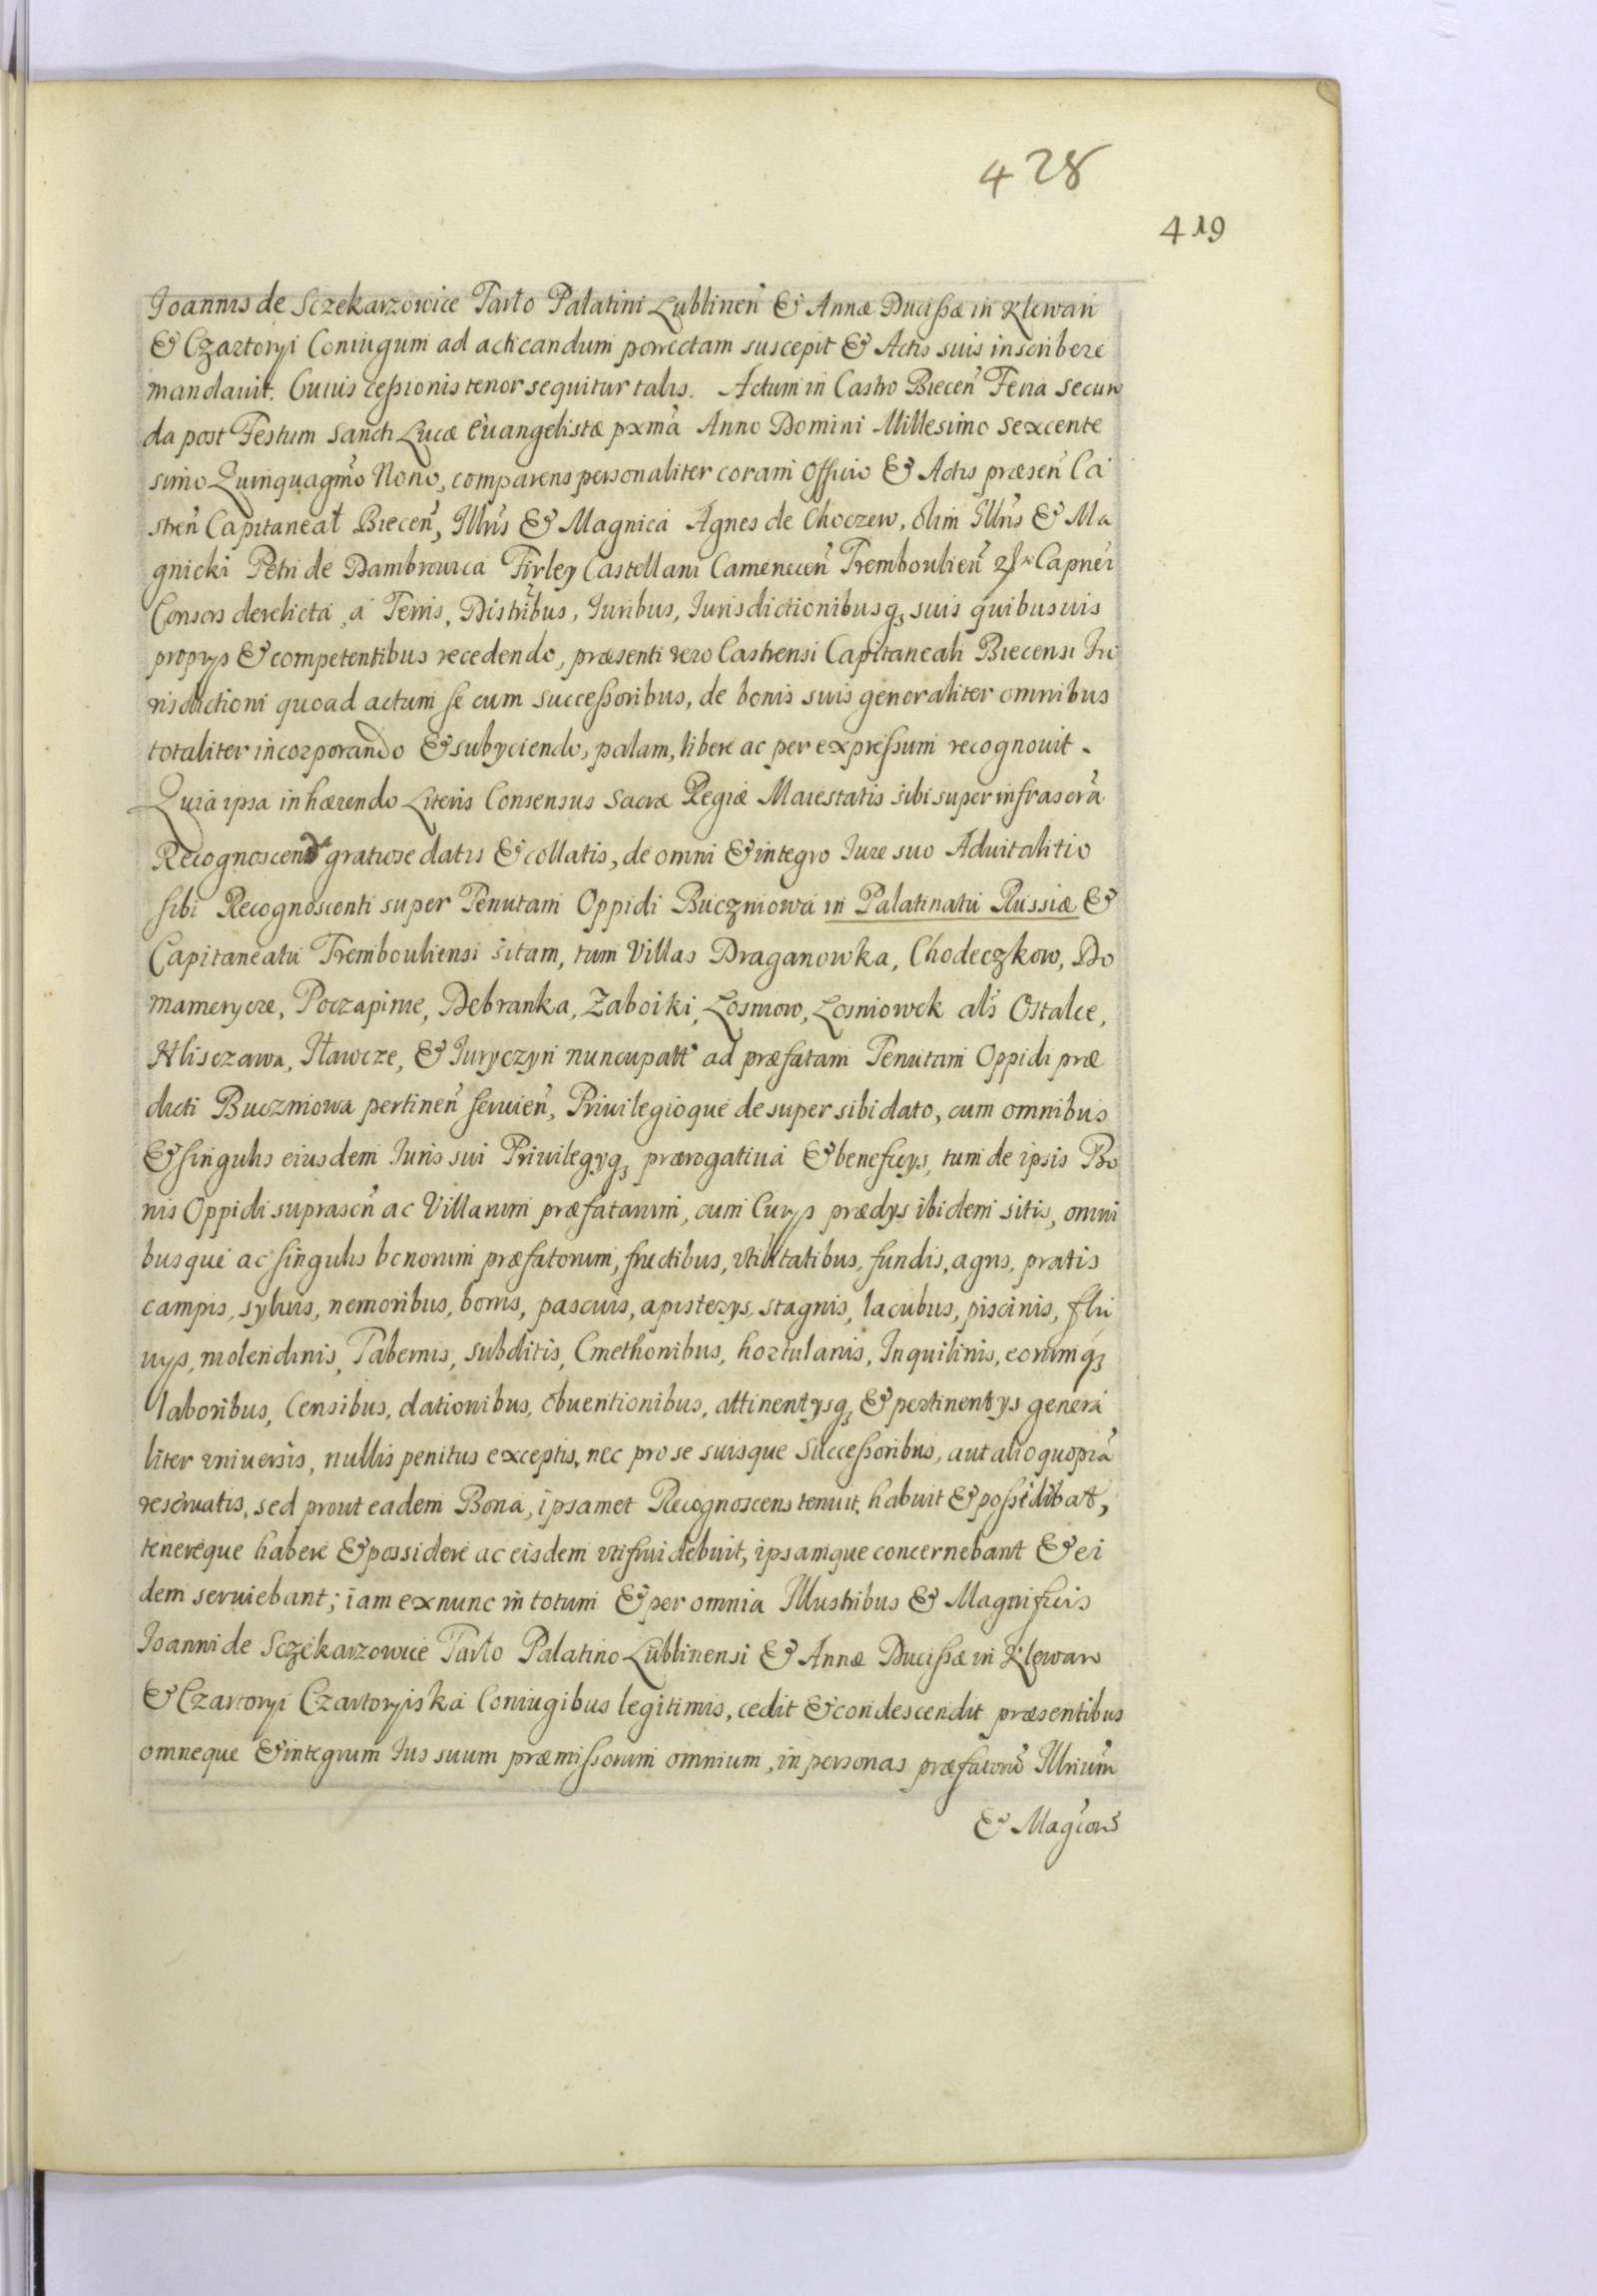 428
419
Joannis de Sczekarzowice Tarło Palatini Lublinen̄ & Annæ Ducißæ in Klewan
& Czartoryi Coniugum ad acticandum porrectam suscepit & Actis suis inscribere
mandauit. Cuius ceßionis tenor sequitur talis. Actum in Castro Biecen̄ Feria Secun
da post Festum Sancti Lucæ Euangelistæ pxmā Anno Domini Millesimo Sexcente
simo Quinquagm̄o Nono, comparens personaliter coram Officio & Actis præsen̄ Ca
stren̄ Capitaneał Biecen̄, Illrīs & Magnica Agnes de Choczew, olim Illrīs & Ma
gnicki Petri de Dambrowica Firley Castellani Camenecen̄ Trembouliēn Capnei
Consors derelicta, a Terris, Distribus, Iuribus, Iurisdictionibusq₃ suis quibusuis
proprys & competentibus recedendo, præsenti vero Castrensi Capitaneali Biecensi Iu
risdictioni quoad actum se cum Succeßoribus, de bonis suis generaliter omnibus
totaliter incorporando & subyciendo, palam, libere ac per expreßum recognouit.
Quia ipsa inhærendo Literis Consensus Sacræ Regiæ Maiestatis sibi super infrascrā
Recognoscend gratiose datis & collatis, de omni & integro Iure suo Aduitalitio
sibi Recognoscenti super Tenutam Oppidi Buczniowa in Palatinatu Russiæ &
Capitaneatu Trembouliensi sitam, tum Villas Draganowka, Chodeczkow, Do
mamerycze, Poczapince, Debranka, Zaboiki, Losniow, Losniowek als Ostalce,
Hlisczawa, Iławcze, & Iuryczyn nuncupatt ad præfatam Tenutam Oppidi præ
dicti Buczniowa pertinen̄ seruien̄, Priuilegioque desuper sibi dato, cum omnibus
& singulis eiusdem Iuris sui Priuilegyq₃ prærogatiua & beneficys, tum de ipsis Bo
nis Oppidi suprascr̄ ac Villarum præfatarum, cum Curys prædys ibidem sitis, omni
busque ac singulis bonorum præfatorum, fructibus, vtilitatibus, fundis, agris, pratis
campis, syluis, nemoribus, borris, pascuis, apisterys, stagnis, lacubus, piscinis, flu
uys, molendinis, Tabernis, subditis, Cmethonibus, hortulanis, Inquilinis, eorumq₃
laboribus, Censibus, dationibus, obuentionibus, attinentysq₃ & pertinentys genera
liter vniuersis, nullis penitus exceptis, nec pro se suisque Succeßoribus, aut alio quopiā
reseruatis, sed prout eadem Bona, ipsamet Recognoscens tenuit, habuit & poßidebat,
tenereque habere & possidere ac eisdem vtifrui debuit, ipsamque concernebant & ei
dem seruiebant; iam exnunc in totum & per omnia Illustribus & Magnificis
Joanni de Sczekarzowice Tarło Palatino Lublinensi & Annæ Ducißæ in Klewan
& Czartoryi Czartoryiska Coniugibus legitimis, cedit & condescendit præsentibus
omneque & integrum Ius suum præmißorum omnium, in personas præfatorū Illriūm
& Magcorū